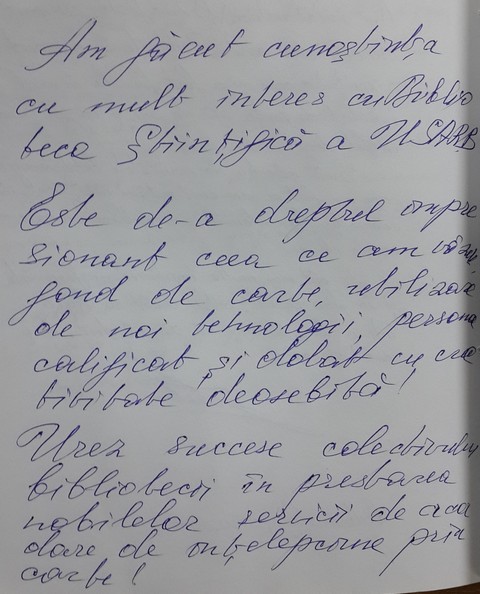 Am făcut cunoștință
cu mult interes cu Biblio
teca Științifică a USARB
Este de-a dreptul impre
sionant ceea ce am văzut,
fond de carte, utilizare
de noi tehnologii, persona
calificat și dotat cu crea
tivitate deosebită!
Urez succese colectivului
bibliotecii în prestarea
nobilelor servicii de acor
dare de înțelepciune prin
carte!